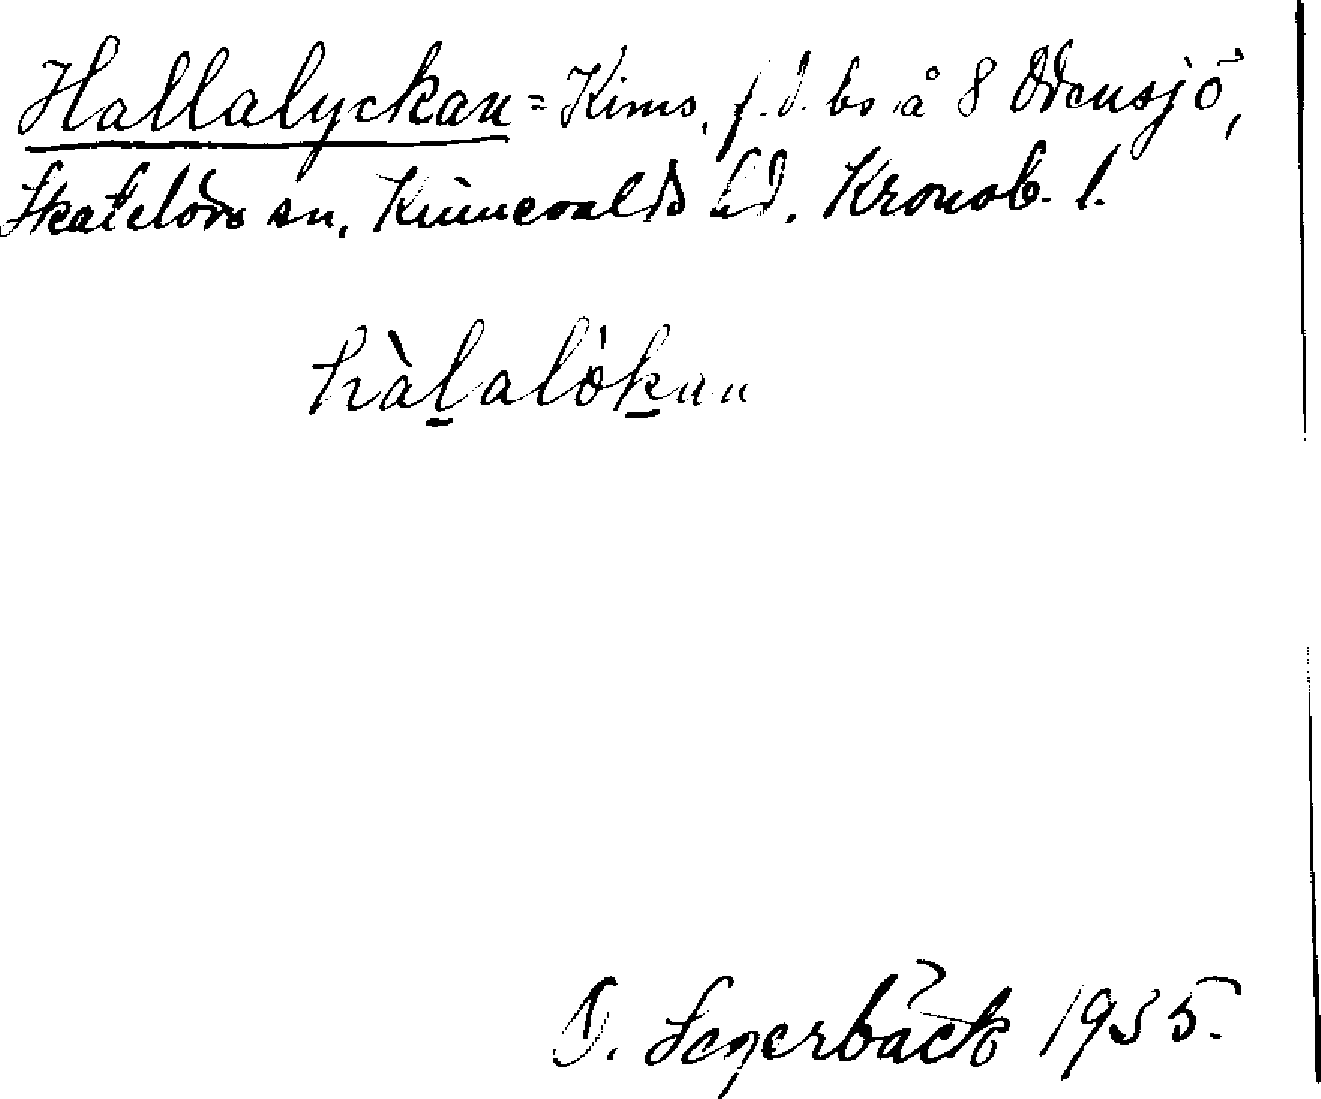 Hallalyckan = Kims, f.d. bs å 8 Odensjö,
Skatelövs sn, Kinnevalds hd. Kronob. l.
hàlalòkan
D. Segerbäck 1955.